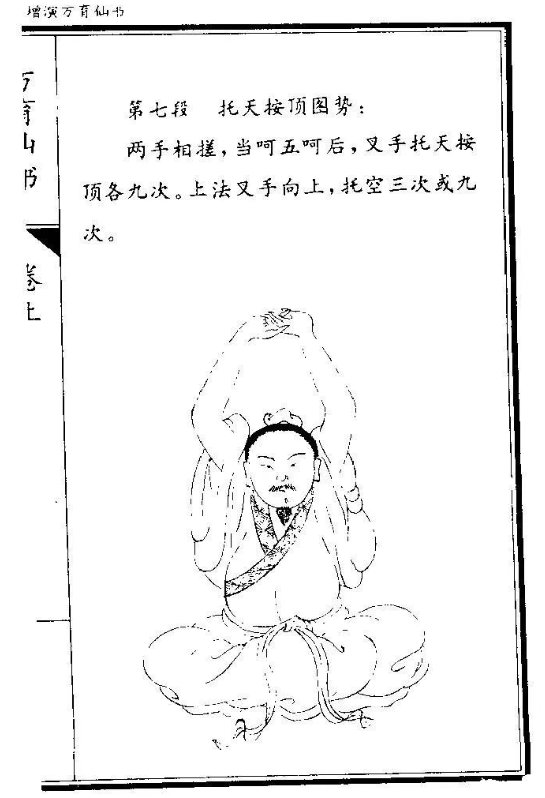 增演万育仙书
万育仙书
卷上
第七段 托天按顶图势：
两手相搓，当呵五呵后，叉手托天按
顶各九次。上法叉手向上，托空三次或九
次。